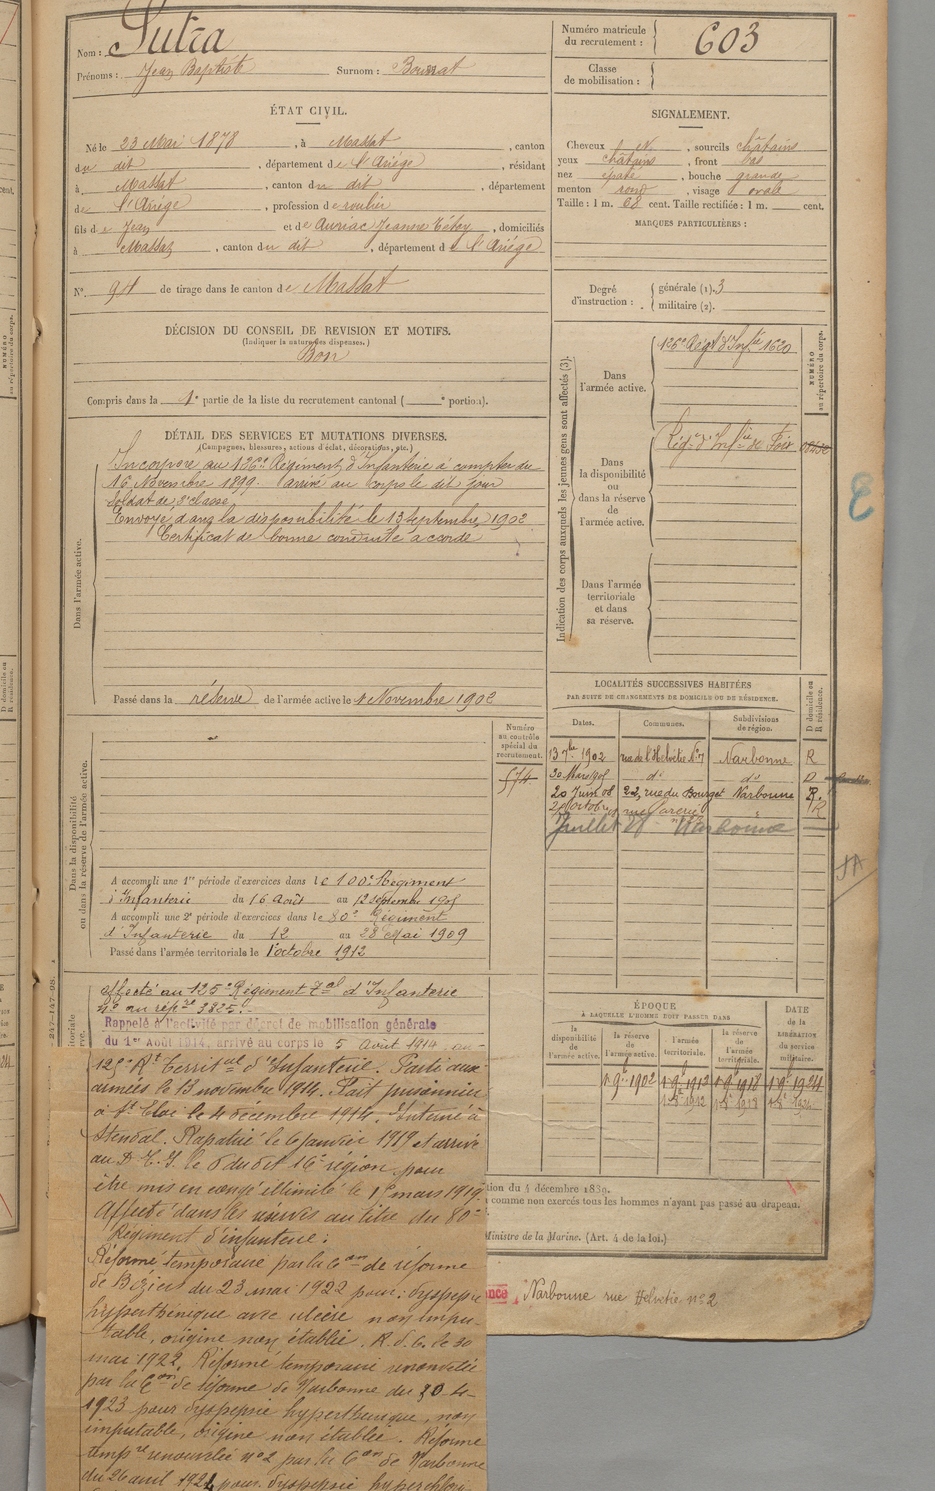 Nom : Sutra
Prénoms : Jean Baptiste Surnom : Bourrat
Numéro matricule du recrutement : 603
Classe de mobilisation :
ÉTAT CIVIL.
Né le 23 Mai 1878, à Massat, canton
du dit, département de l'Ariège, résidant
à Massat, canton du dit, département
de l'Ariège, profession de roulier
fils de Jean et de Auriac Jeanne, domiciliés
à Massat, canton du dit, département de l'Ariège
N° 94 de tirage dans le canton de Massat
SIGNALEMENT.
Cheveux, sourcils châtains
yeux châtains, front bas
nez épaté, bouche grande
menton rond, visage ovale
Taille : 1 m. 68 cent. Taille rectifiée : 1 m. cent.
MARQUES PARTICULIÈRES :
Degré d'instruction : générale (1). 3
militaire (2).
DÉCISION DU CONSEIL DE REVISION ET MOTIFS.
(Indiquer la nature des dispenses.)
Bon
Compris dans la 1e partie de la liste du recrutement cantonal ( e portion).
DÉTAIL DES SERVICES ET MUTATIONS DIVERSES.
(Campagnes, blessures, actions d'éclat, décorations, etc.)
Dans l'armée active.
Incorporé au 126e Régiment d'Infanterie à compter du
16 Novembre 1899. arrivé au corps le dit jour
soldat de 2e classe
Envoyé dans la disponibilité le 13 Septembre 1902
Certificat de bonne conduite accordé
Passé dans la réserve de l'armée active le 1 Novembre 1902
Indication des corps auxquels les jeunes gens sont affectés (3).
NUMÉRO au répertoire du corps.
Dans l'armée active.
126e Régt d'Infie 1620
Dans la disponibilité ou dans la réserve de l'armée active.
Régt d'Infie de Foix
Dans l'armée territoriale et dans sa réserve.
LOCALITÉS SUCCESSIVES HABITÉES
PAR SUITE DE CHANGEMENTS DE DOMICILE OU DE RÉSIDENCE.
Dates. Communes. Subdivisions de région. D domicile ou R résidence.
13 7bre 1902 rue de l'Helvétie N°7 Narbonne R
30 Mars 1905 do do D
20 Juin 08 22, rue du Bourget Narbonne R.
Juillet Narbonne
Dans la disponibilité ou dans la réserve de l'armée active.
Numéro au contrôle spécial du recrutement.
574
A accompli une 1re période d'exercices dans le 100e Régiment
d'Infanterie du 16 Août au 12 Septembre 1905
A accompli une 2e période d'exercices dans le 80e Régiment
d'Infanterie du 12 au 28 Mai 1909
Passé dans l'armée territoriale le 1 octobre 1912
Affecté au 125e Régiment Tal d'Infanterie
n° au répre 3825
Rappelé à l'activité par décret de mobilisation générale
du 1er Août 1914, arrivé au corps le 5 Août 1914 au
125e Rt Territal d'Infanterie. Parti aux
armées le 13 novembre 1914. Fait prisonnier
à St Eloi le 4 décembre 1914. Interné à
Stendal. Rapatrié le 6 janvier 1919 et arrivé
au D. T. I. le 6 du dit 16e région pour
être mis en congé illimité le 1er mars 1919
Affecté dans les réserves au titre du 80e
Régiment d'infanterie :
Réformé temporaire par la Con de réforme
de Béziers du 23 mai 1922 pour : dyspepsie
hypersthénique avec ulcère non impu-
table, origine non établie. R. d. C. le 30
mai 1922. Réformé temporaire renouvelée
par la Con de réforme de Narbonne du 30-4-
1923 pour dyspepsie hypersthénique, non
imputable, origine non établie. Réforme
tempre renouvelée n° 2 par la Con de Narbonne
du 26 avril 1924 pour dyspepsie
ÉPOQUE
À LAQUELLE L'HOMME DOIT PASSER DANS
la disponibilité de l'armée active.
la réserve de l'armée active.
l'armée territoriale.
la réserve de l'armée territoriale.
DATE de la LIBÉRATION du service militaire.
1 9bre 1902 1 9bre 1912 1 9bre 1918 1 9bre 1924
1 8bre 1912 1 8bre 1918 1 8bre 1924
tion du 4 décembre 1839.
comme non exercés tous les hommes n'ayant pas passé au drapeau.
Ministre de la Marine. (Art. 4 de la loi.)
nce Narbonne rue Helvétie n° 2